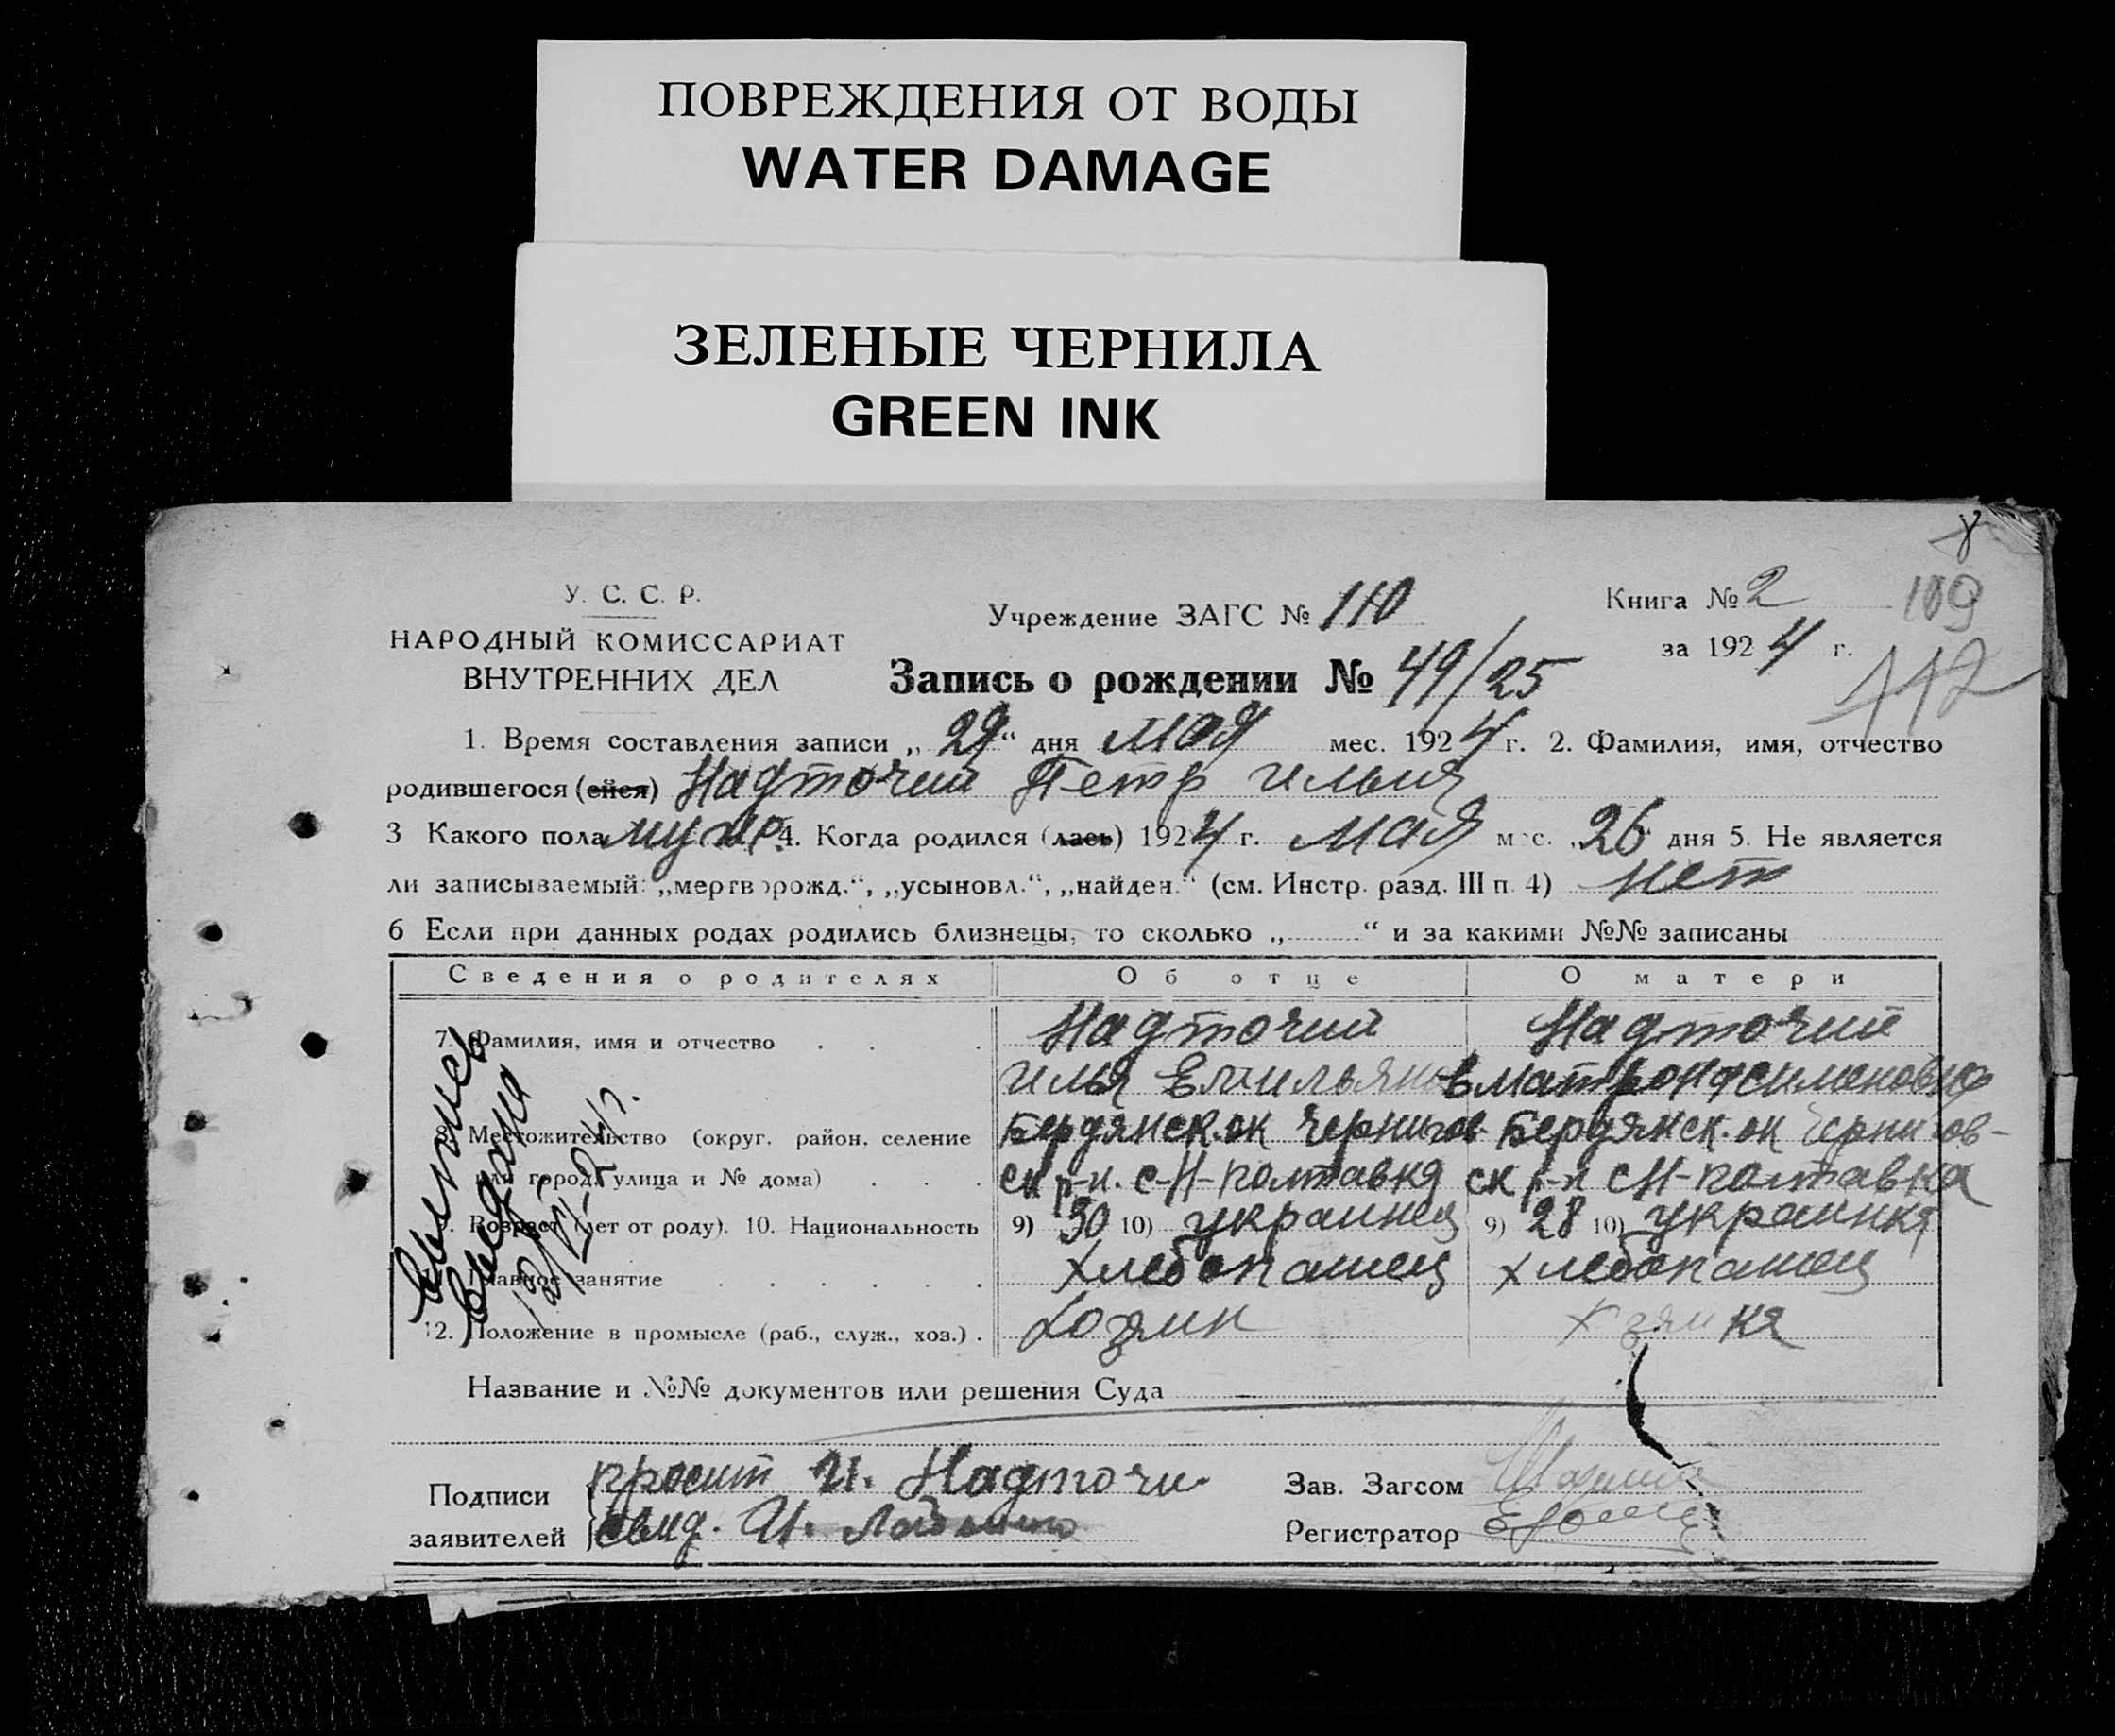 ПОВРЕЖДЕНИЯ ОТ ВОДЫ
WATER DAMAGE
ЗЕЛЕНЫЕ ЧЕРНИЛА
GREEN INK
У. С. С. Р.
НАРОДНЫЙ КОМИССАРИАТ
ВНУТРЕННИХ ДЕЛ
Учреждение ЗАГС № 110
Книга № 2
109
за 1924 г.
112
Запись о рождении № 49/25
1. Время составления записи „29“ дня мая мес. 1924 г. 2. Фамилия, имя, отчество
родившегося (ейся) Надточий Петр Илья
3 Какого пола муж. 4. Когда родился (лась) 1924 г. мая мес. „26“ дня 5. Не является
ли записываемый: „мертворожд.“, „усыновл.“, „найден.“ (см. Инстр. разд. III п. 4) нет
6 Если при данных родах родились близнецы, то сколько „ “ и за какими №№ записаны
Сведения о родителях Об отце О матери
7. Фамилия, имя и отчество Надточий Надточий
Илья Емильянов Матрона Сименовна
8. Местожительство (округ, район, селение Бердянск. ок Чернигов- Бердянск. ок Чернигов-
или город, улица и № дома) ск р-н. с-Н-Полтавка ск р-н с Н-Полтавка
9. Возраст (лет от роду). 10. Национальность 9) 30 10) украинец 9) 28 10) украинка
11. Главное занятие хлебопашец хлебопашец
12. Положение в промысле (раб., служ., хоз.) хозяин хозяйка
Выпись
выдана
Название и №№ документов или решения Суда
Подписи просит И. Надточи
заявителей свид. И.
Зав. Загсом
Регистратор